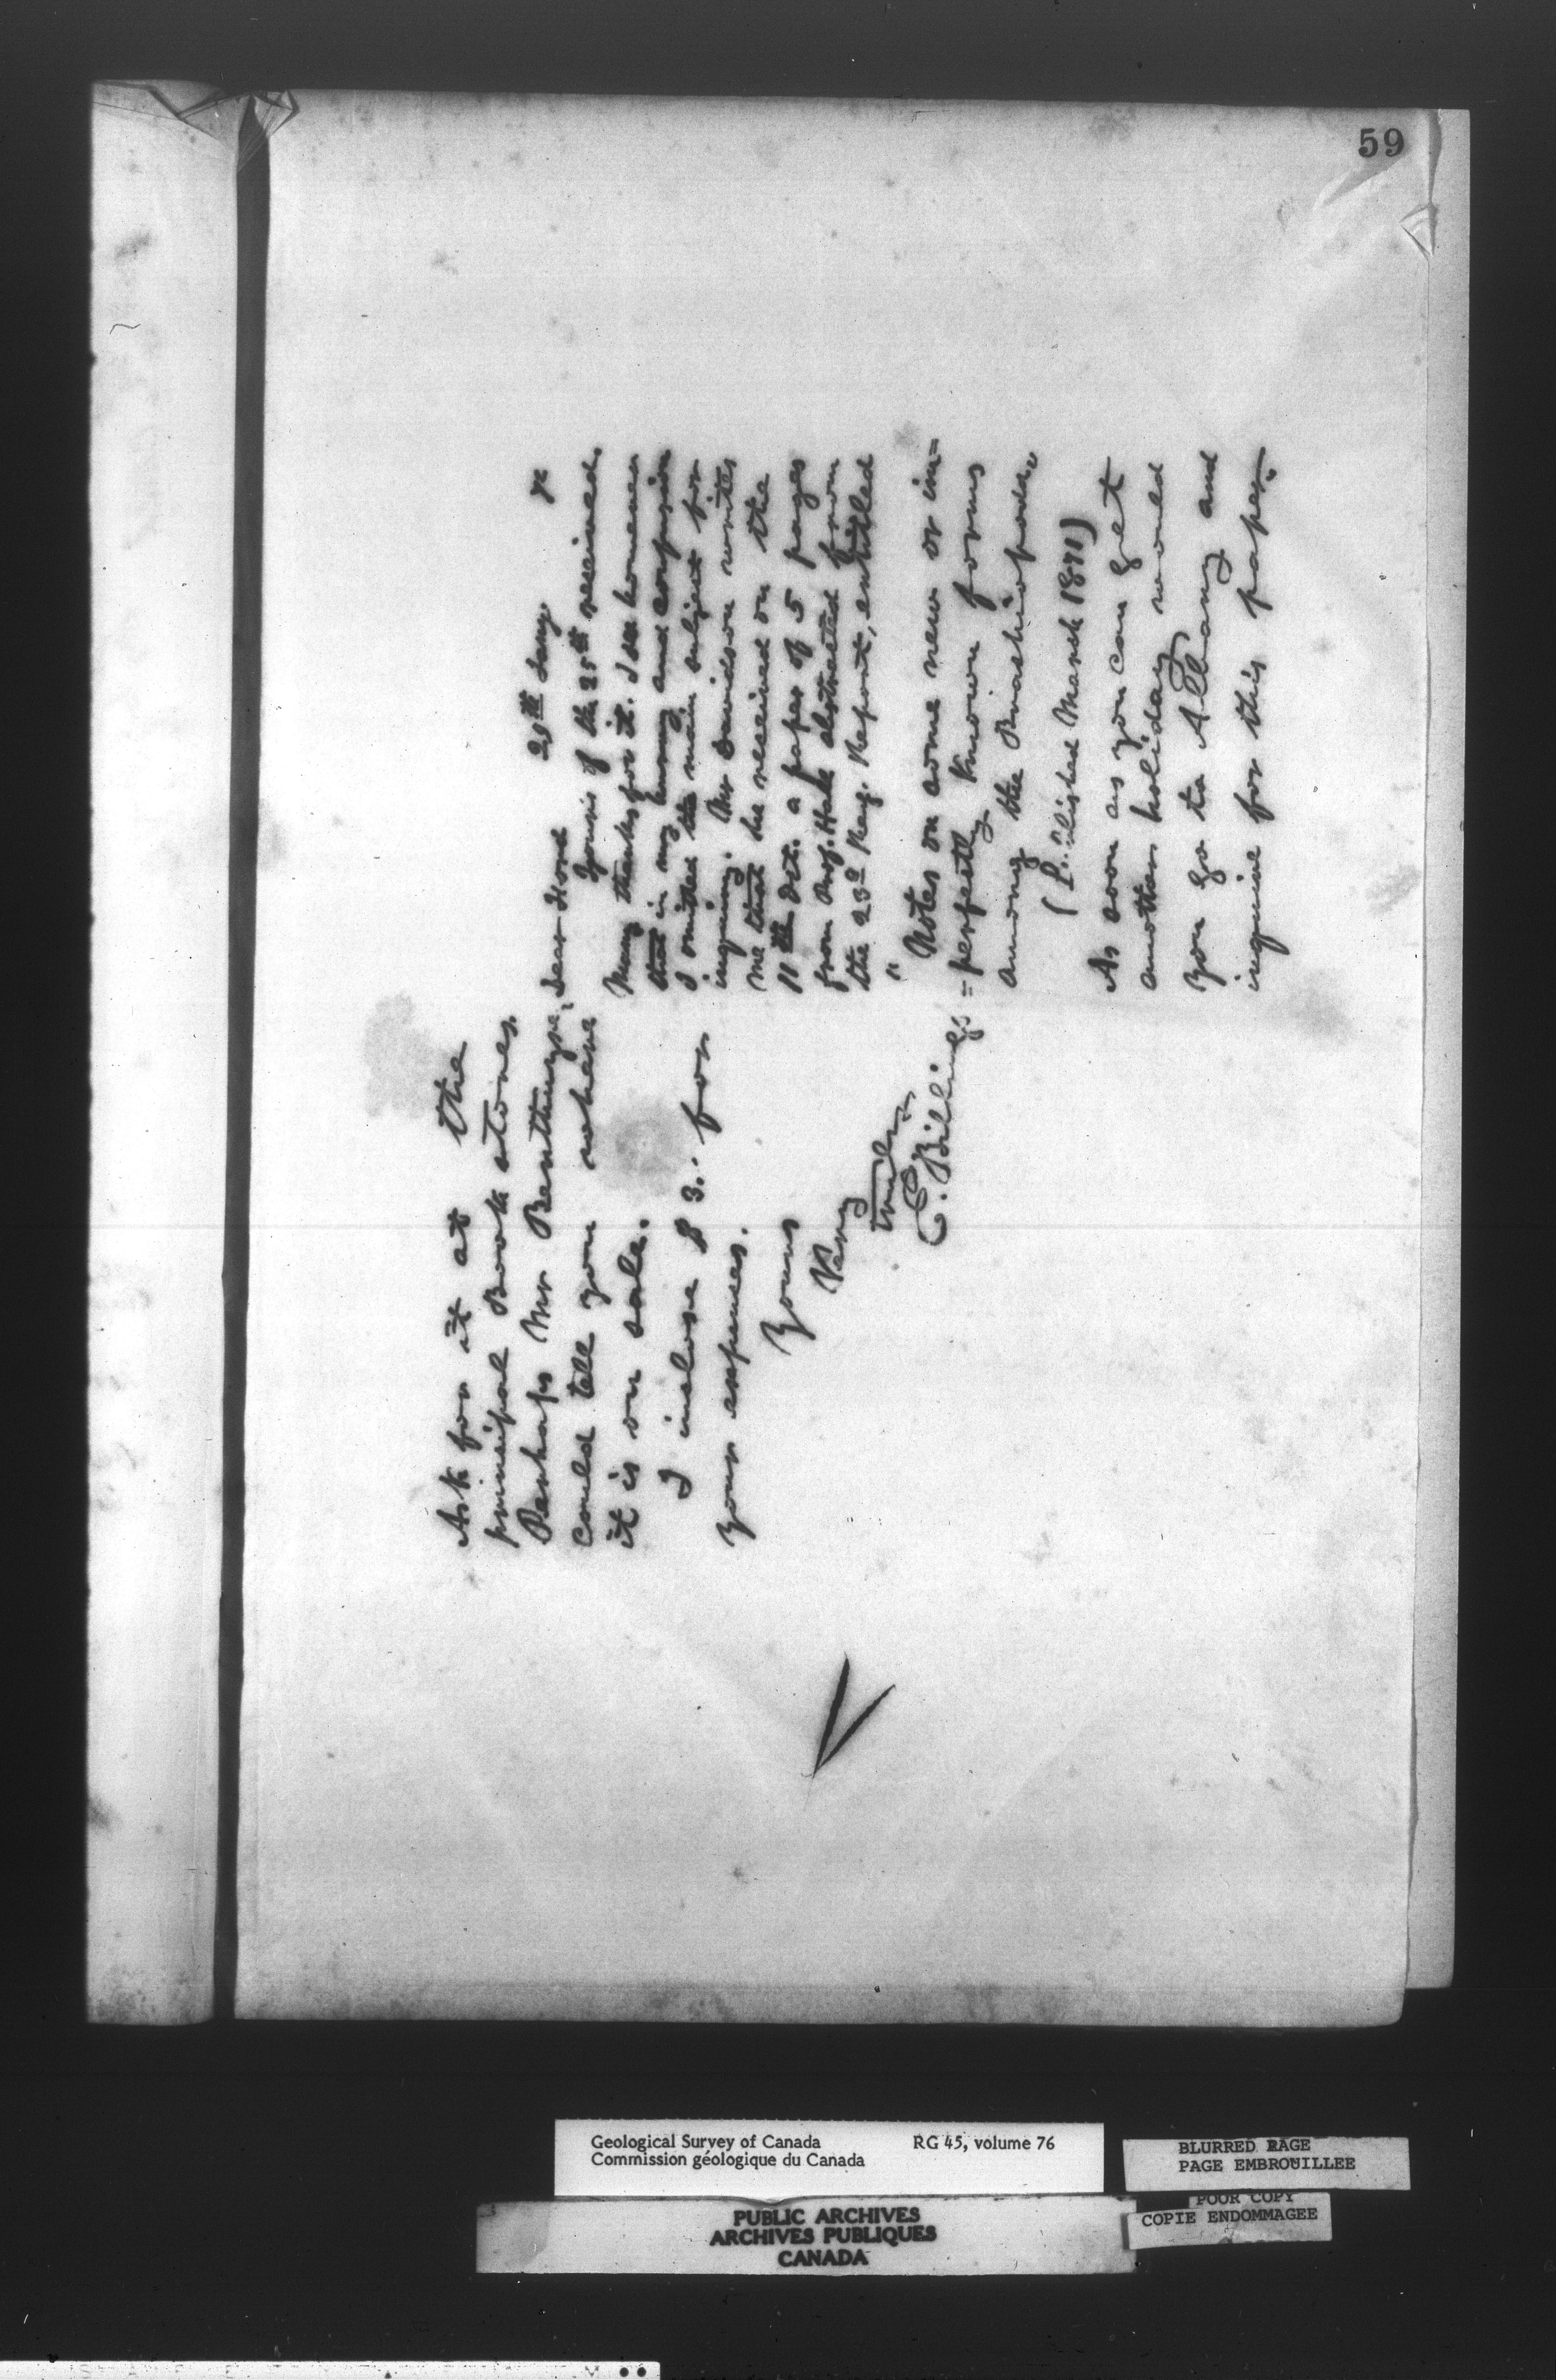 59
29th Jany 72
Dear Ford
Yours of the 25th received.
Many thanks for it. I see however
that in my hurry and confusion
I omitted the main subject for
inquiry. Mr Davidson writes
me that he received on the
11th Oct. a paper of 5 pages
from Prof. Hall abstracted from
the 23d Reg. Report, entitled
" Notes on some new or im=
=perfectly known forms
among the Brachiopoda"
(P"blished March 1871)
As soon as you can get
another holiday would
you go to Albany and
inquire for this paper.
Ask for it at the
principal Book stores.
Perhaps Mr
could tell you where
it is on sale.
I inclose $3.. for
your expenses.
Yours
Very
truly
E. Billings
Geological Survey of Canada RG 45, volume 76
Commission géologique du Canada
BLURRED PAGE
PAGE EMBROUILLEE
POOR COPY
COPIE ENDOMMAGEE
PUBLIC ARCHIVES
ARCHIVES PUBLIQUES
CANADA